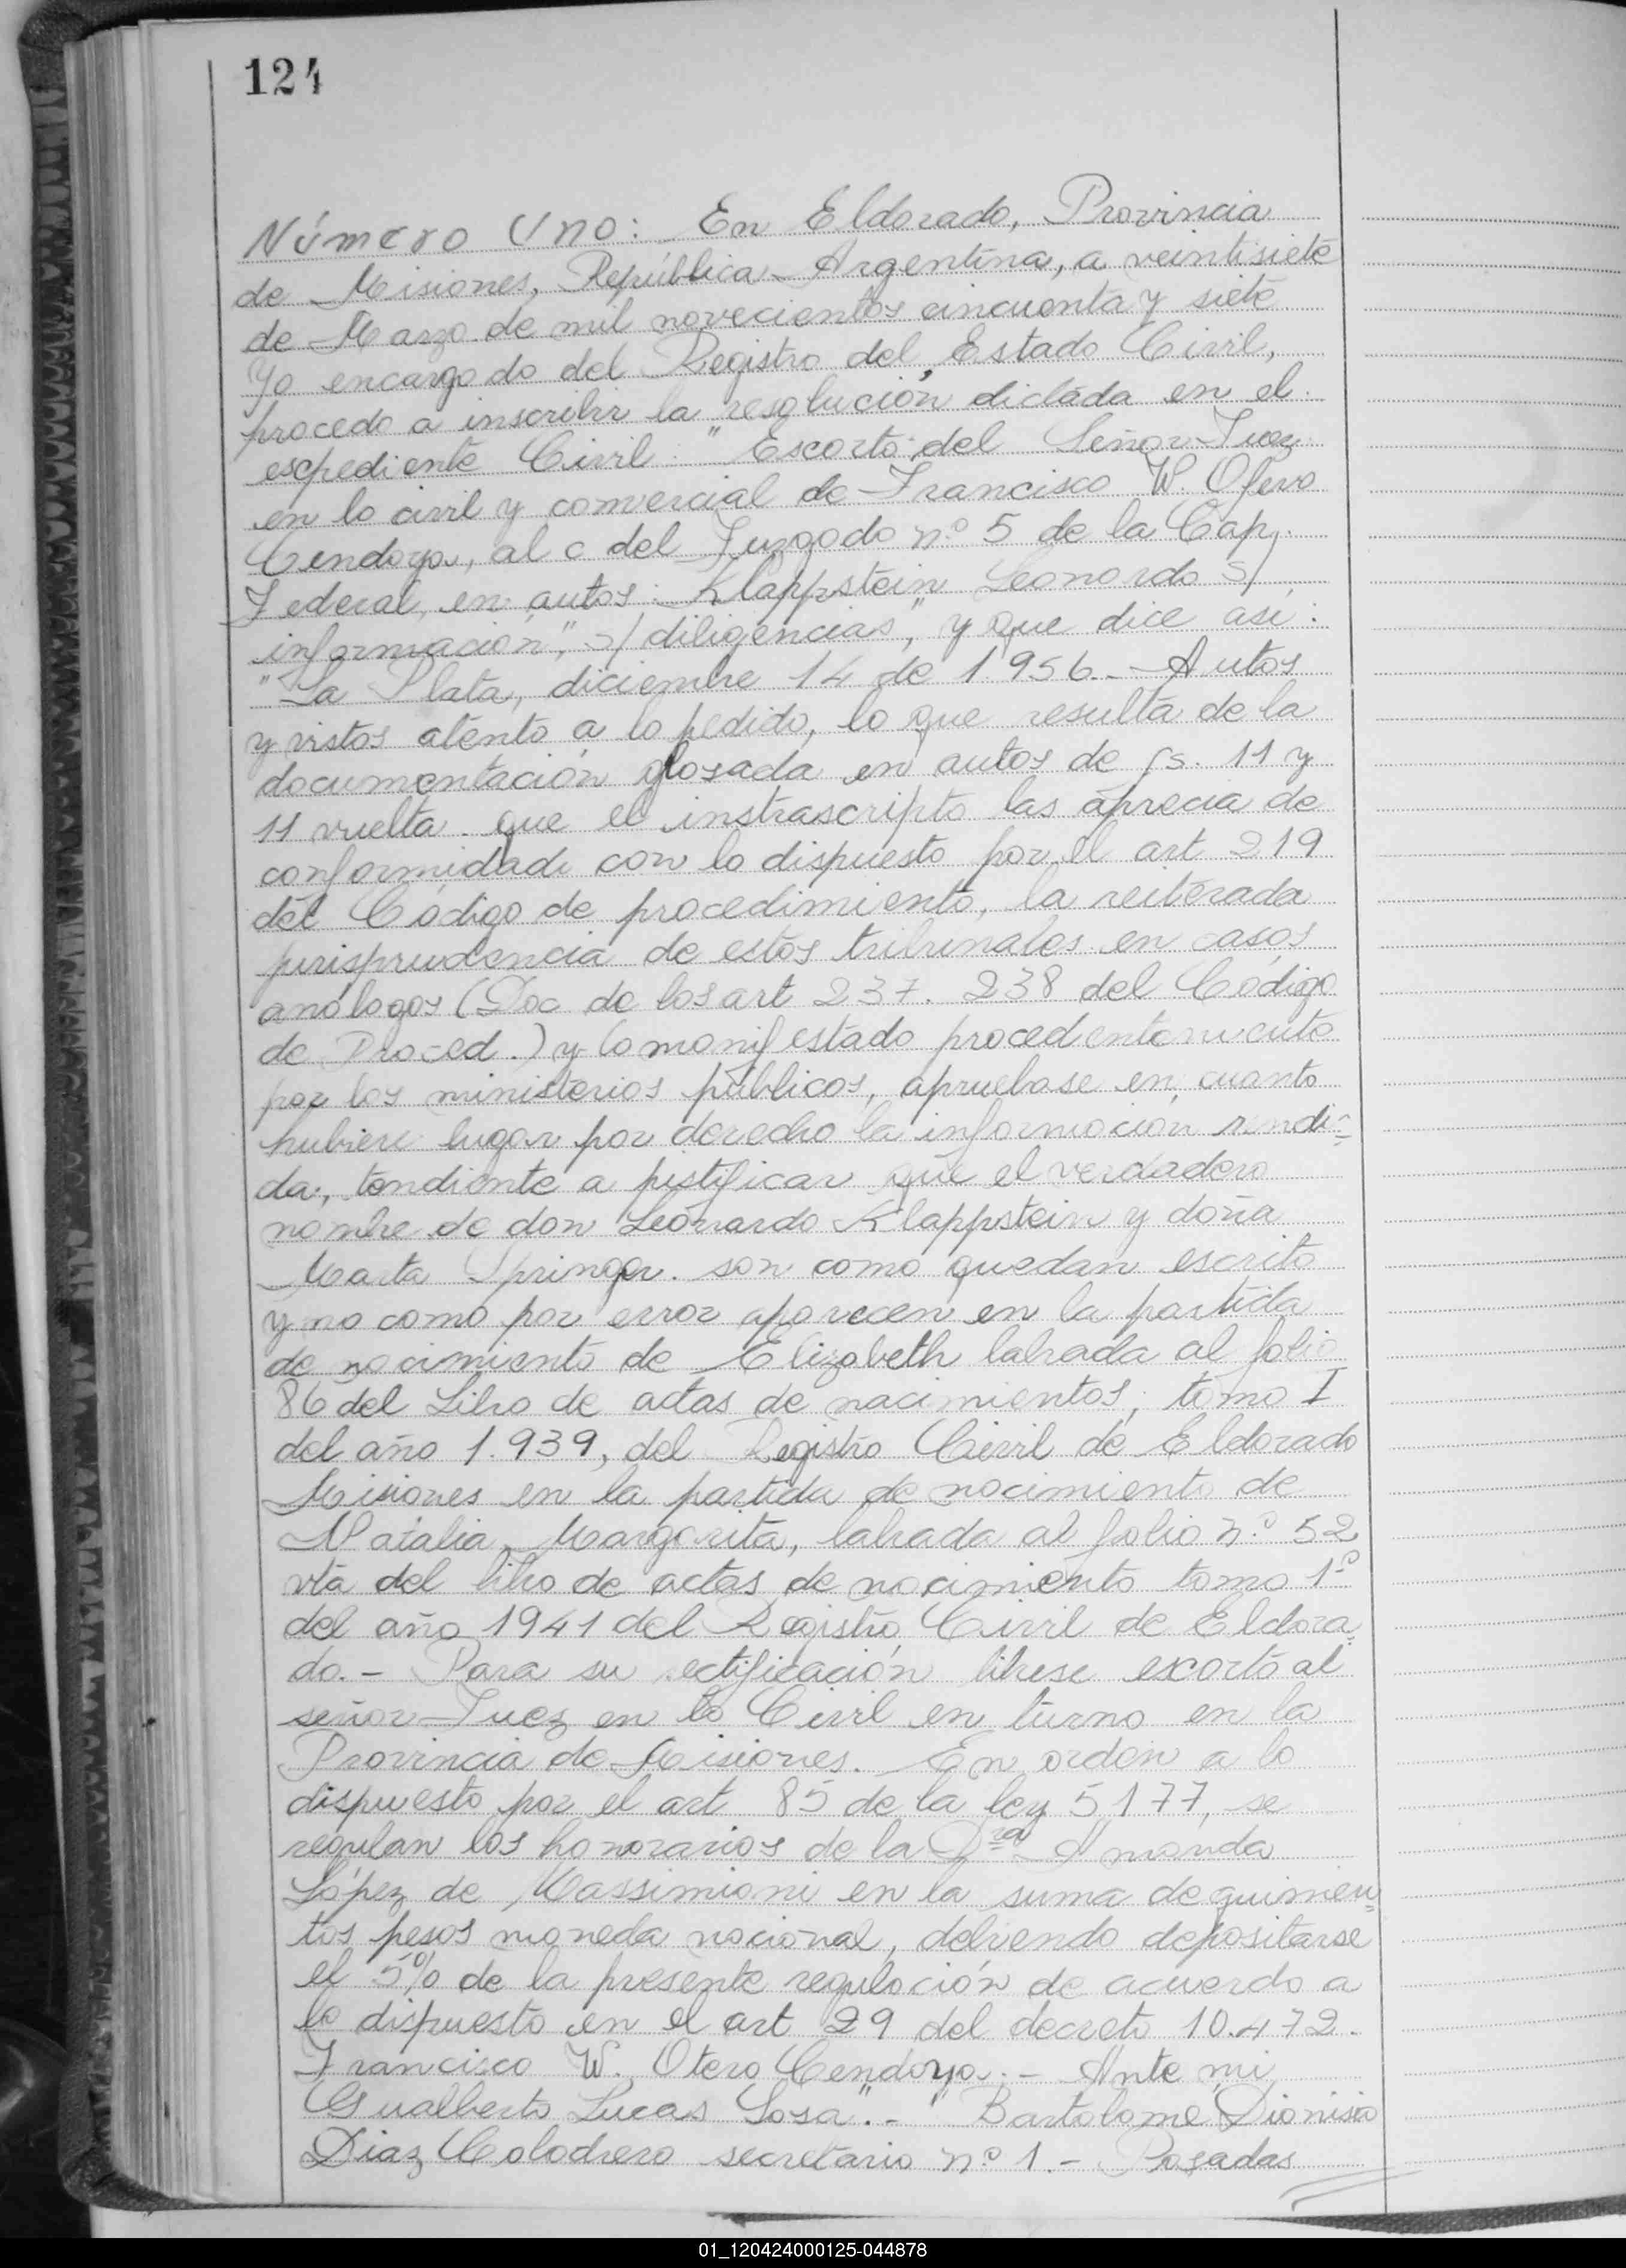 124
Número Uno: En Eldorado, Provincia
de Misiones, República Argentina, a veintisiete
de Marzo de mil novecientos cincuenta y siete
Yo encargado del Registro del Estado Civil,
procedo a inscribir la resolución dictada en el
espediente Civil: "Escorto del Señor Juez
en lo civil y comercial de Francisco W. Otero
Cendoya, al c del Juzgado n.º 5 de la Cap.
Federal, en autos: Klappstein Leonardo s/
información", s/ diligencias", y que dice así:
"La Plata, diciembre 14 de 1956.- Autos
y vistos atento a lo pedido, lo que resulta de la
documentación glosada en autos de fs. 11 y
11 vuelta. que el instrascripto las aprecia de
conformidade con lo dispuesto por el art 219
del Código de procedimiento, la reiterada
jurisprudencia de estos tribunales en casos
análogos (Doc de los art 237. 238 del Código
de Proced.) y lo manifestado procedentemente
por los ministerios públicos, apruebase en cuanto
hubiere lugar por derecho la información rendi-
da, tendiente a justificar que el verdadero
nombre de don Leonardo Klappstein y doña
Marta Springer. son como quedan escrito
y no como por error aparecen en la partida
de nacimiento de Elizabeth labrada al folio
86 del Libro de actas de nacimientos, tomo I
del año 1.939, del Registro Civil de Eldorado
Misiones en la partida de nacimiento de
Natalia Margarita, labrada al folio n.º 52
vta del libro de actas de nacimiento tomo 1º
del año 1941 del Registro Civil de Eldora-
do.- Para su rectificación librese escorto al
señor Juez en lo Civil en turno en la
Provincia de Misiones. En orden a lo
dispuesto por el art 85 de la ley 5177, se
regulan los honorarios de la Dra Amanda
López de Massimioni en la suma de quinien-
tos pesos moneda nacional, debiendo depositarse
el 5% de la presente regulación de acuerdo a
lo dispuesto en el art 29 del decreto 10.472.
Francisco W. Otero Cendoya.- Ante mi
Gualberto Lucas Sosa".- "Bartolome Dionisio
Diaz Colodrero secretario n.º 1.- Posadas
01_120424000125-044878